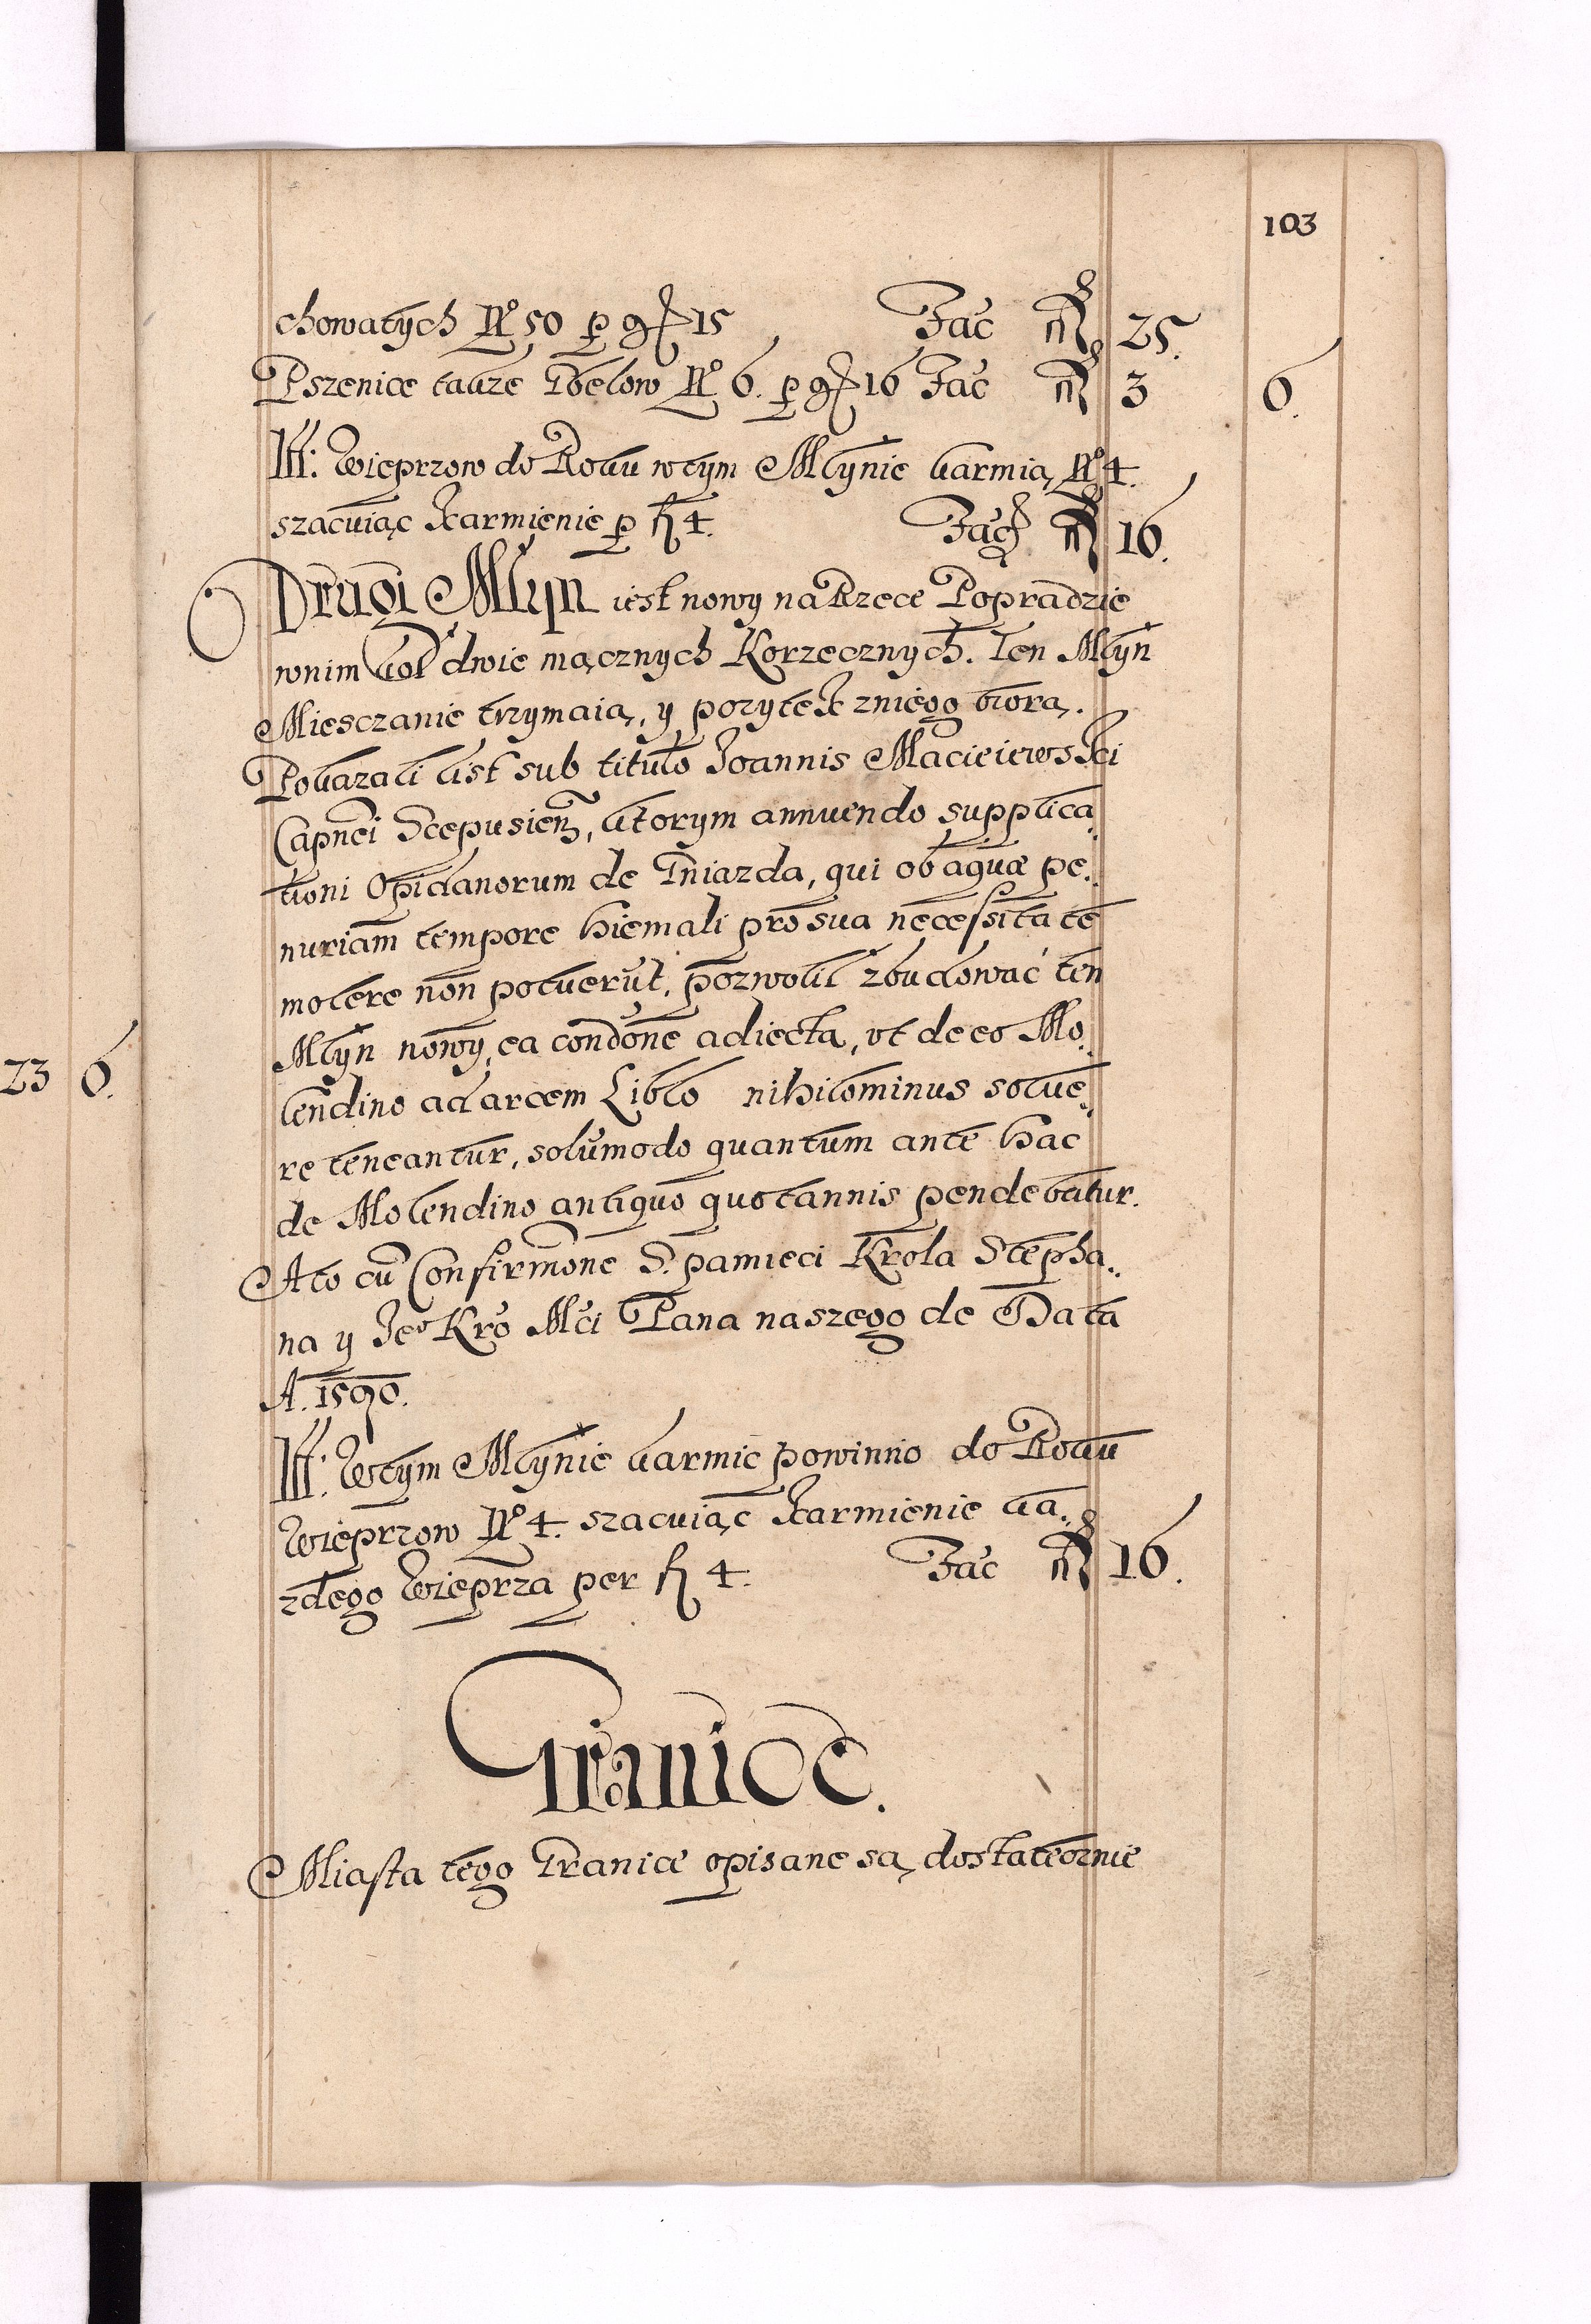 103
chowatych No 50 p gr 15 Fac fl 25.
Pszenice także Gbelow No 6. p gr 16 Fac fl 3 6.
It: Wieprzow do Roku wtym Młynie karmią No 4.
szacuiąc karmienie p fl 4. Fac fl 16.
Drugi Młyn iest nowy na Rzece Popradzie
wnim koł dwie mącznych Korzecznych. Ten Młyn
Miesczanie trzymaią, y pozytek zniego biorą.
Pokazali list sub titulo Joannis Macieiewski
Capnei Scepusien, ktorym annuendo supplica,,
tioni Opidanorum de Gniazda, qui ob aquæ pe,,
nuriam tempore hiemali pro sua necessitate
molere non potuerūt, pozwolił zbudować ten
Młyn nowy, ea condone adiecta, vt de eo Mo,,
lendino ad arcem Liblo nihilominus solue,,
re teneantur, solūmodo quantum ante hac
de Molendino antiquo quotannis pendebatur.
A to cū Confirmone S. pamieci Krola Stepha,,
na y Jeo Kro Mci Pana naszego de Data
A. 1590.
It: Wtym Młynie karmic powinno do Roku
Wieprzow No 4. szacuiąc karmienie ka,,
zdego Wieprza per fl 4. Fac fl 16.
Granice.
Miasta tego Granice opisane są dostatecznie
23 6.